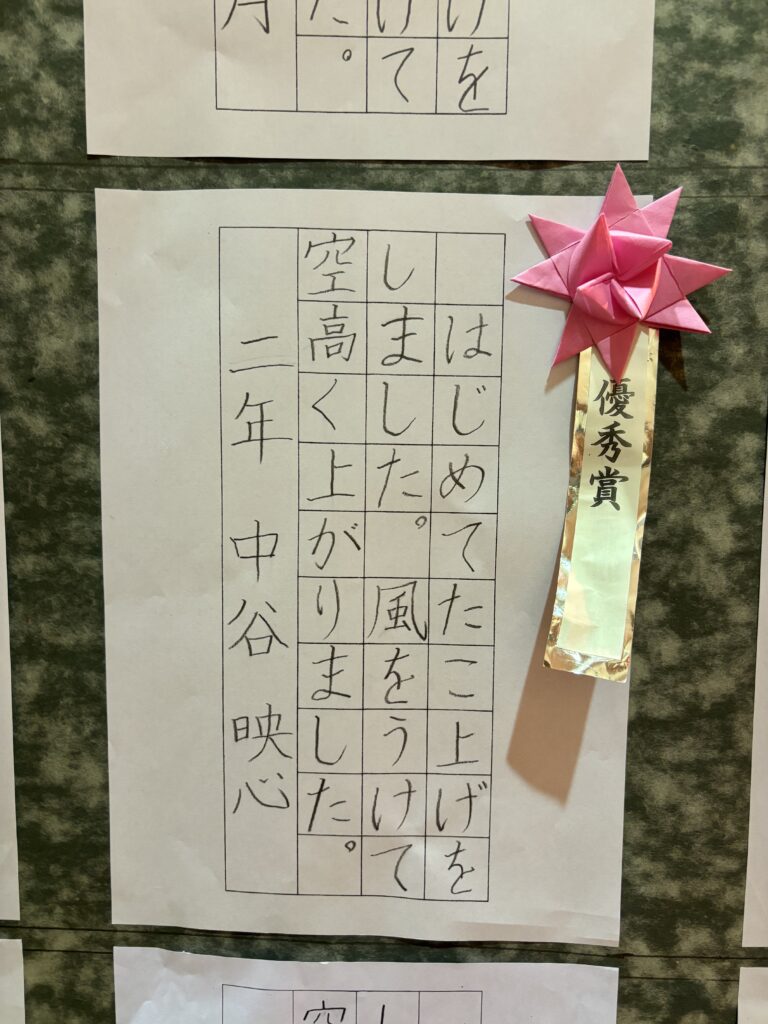 けを
けて
た。
月
優秀賞
はじめてたこ上げを
しました。風をうけて
空高く上がりました。
二年 中谷 映心
し
空